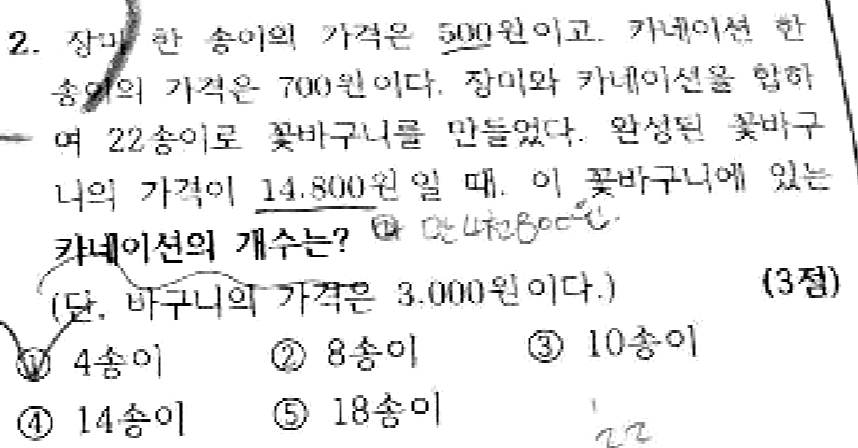 2. 장미 한 송이의 가격은 500원이고, 카네이션 한
송이의 가격은 700원이다. 장미와 카네이션을 합하
여 22송이로 꽃바구니를 만들었다. 완성된 꽃바구
니의 가격이 14,800원일 때, 이 꽃바구니에 있는
카네이션의 개수는?
(단, 바구니의 가격은 3,000원이다.) (3점)
① 4송이 ② 8송이 ③ 10송이
④ 14송이 ⑤ 18송이
22